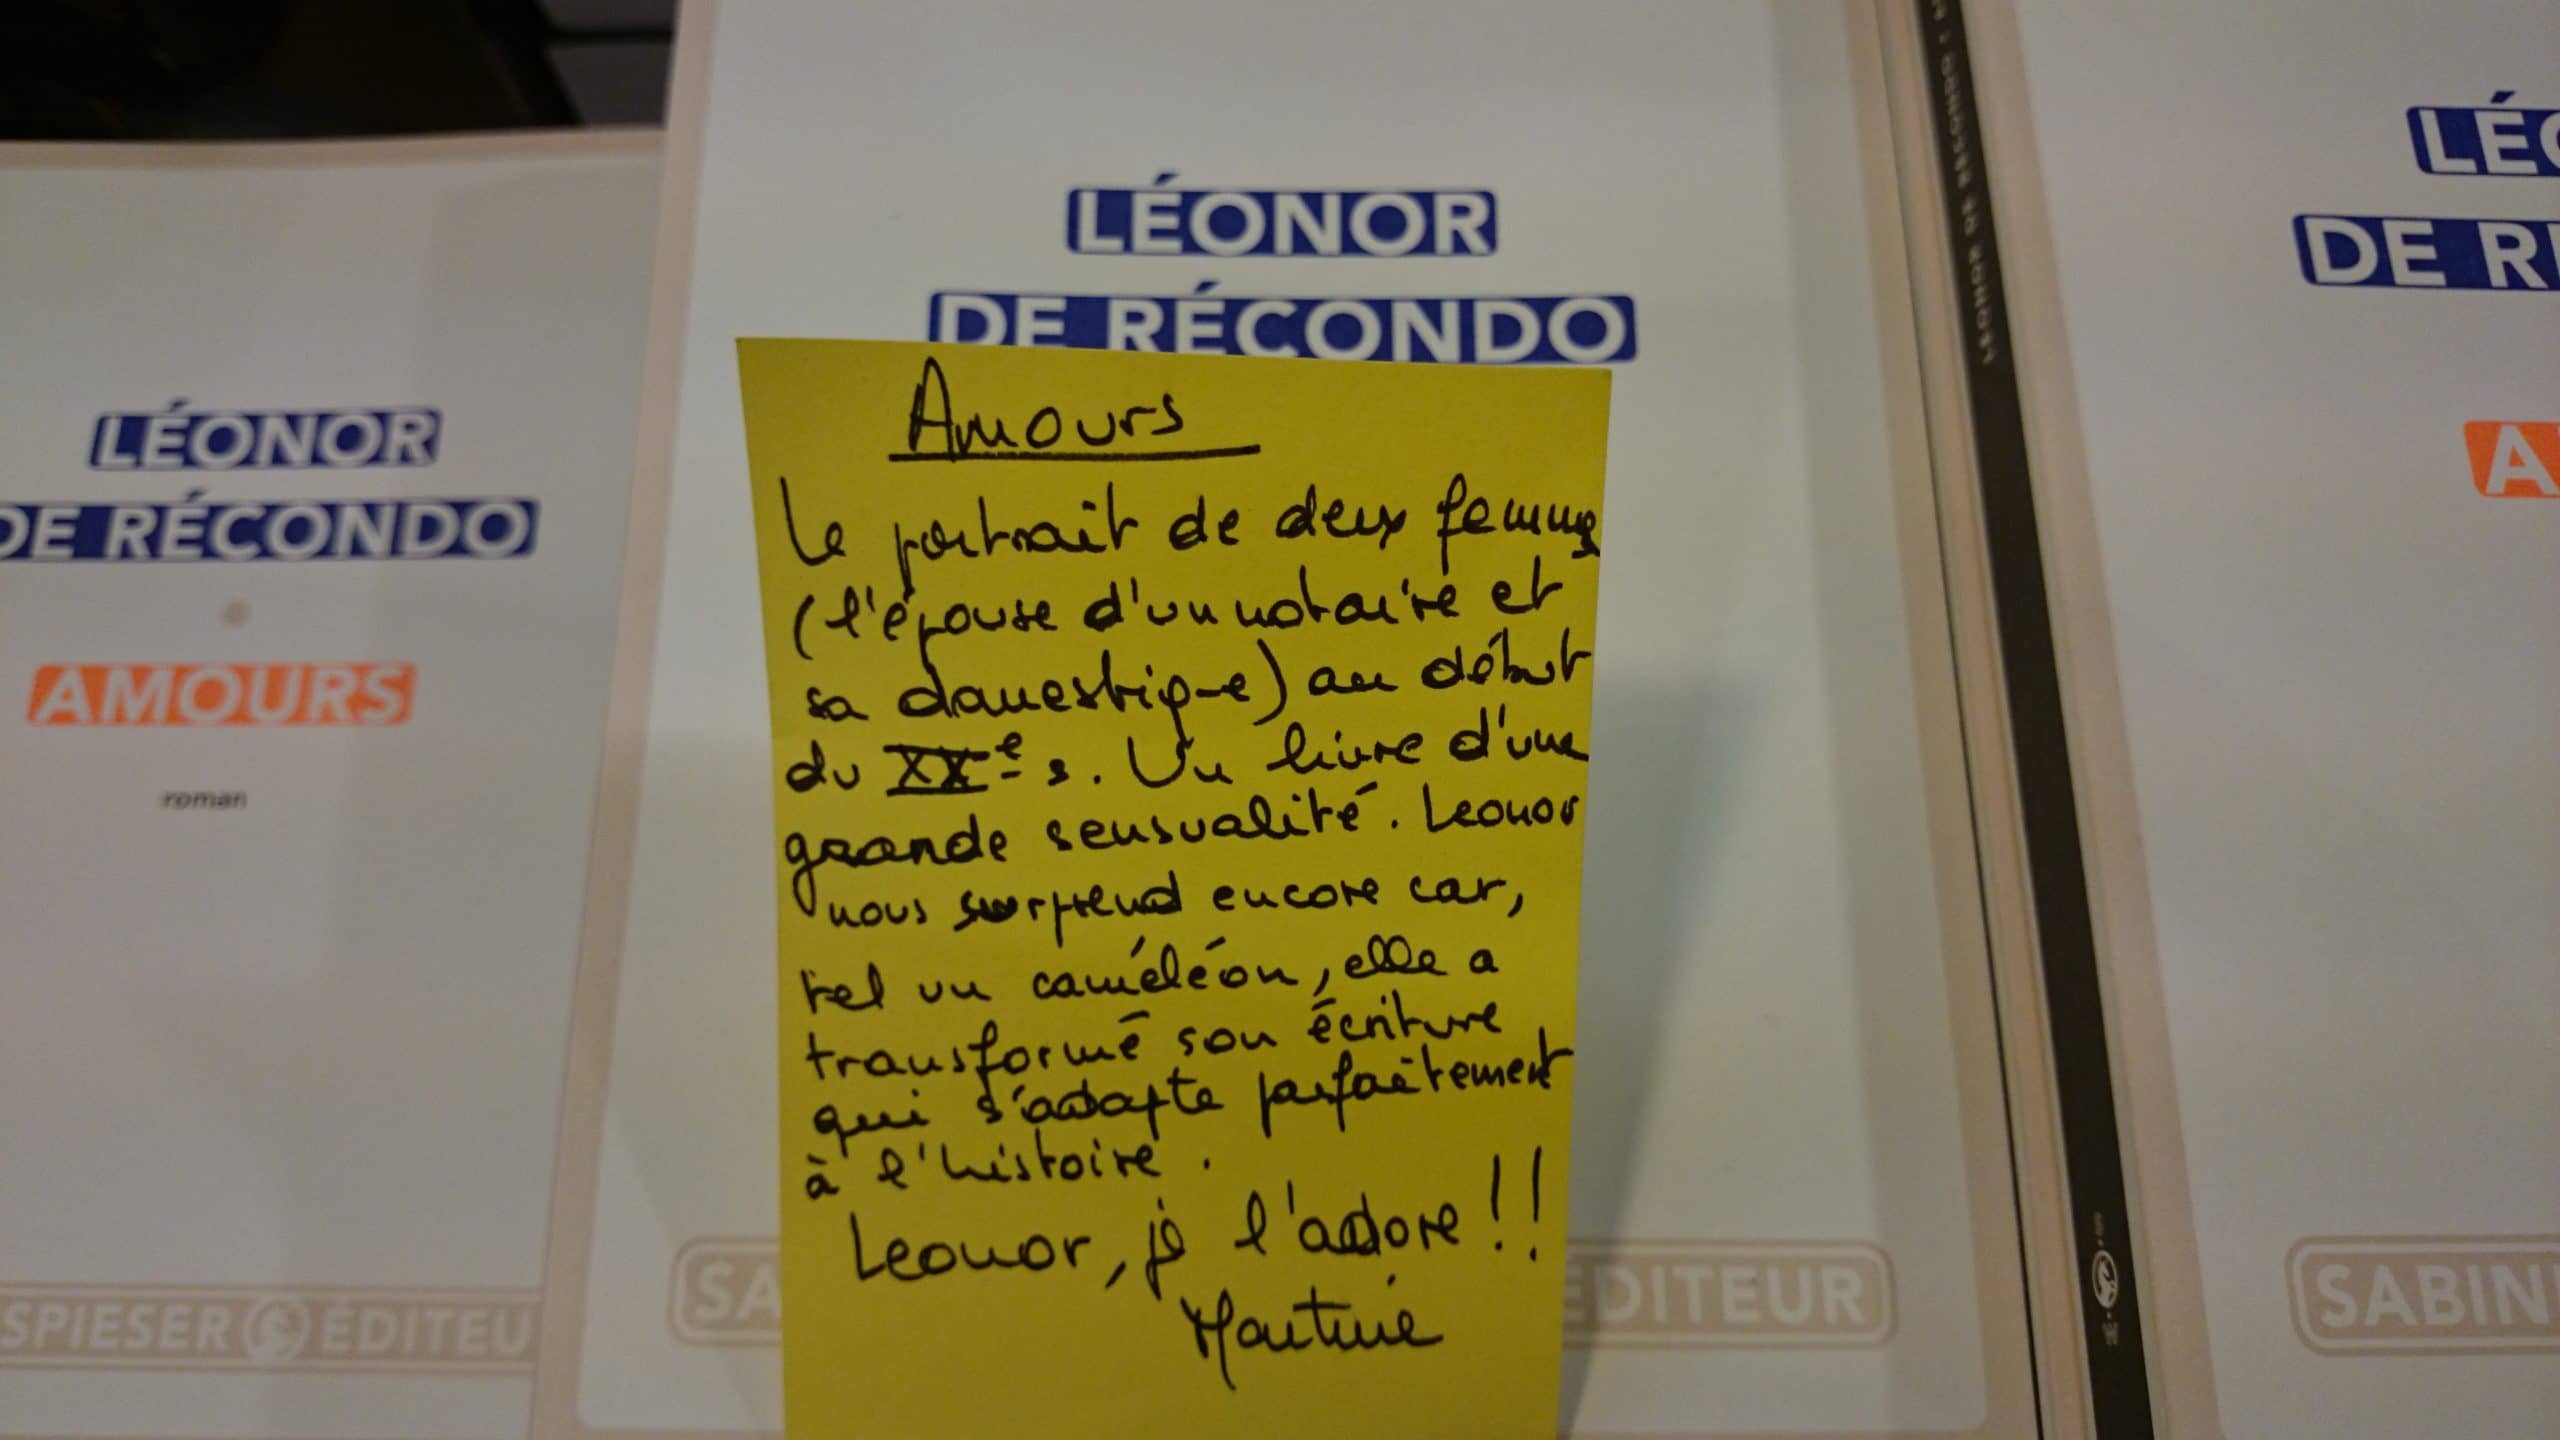 LÉONOR
DE RÉCONDO
AMOURS
roman
SPIESER ÉDITEU
LÉONOR
DE RÉCONDO
Amours
Le portrait de deux femmes
(l'épouse d'un notaire et
sa domestique) au début
du XXe s. Un livre d'une
grande sensualité. Leonor
nous surprend encore car,
tel un caméléon, elle a
transformé son écriture
qui s'adapte parfaitement
à l'histoire.
Leonor, je l'adore !!
Martine
SA
ÉDITEUR
LÉONOR DE RÉCONDO
LÉO
DE RÉ
A
SABIN